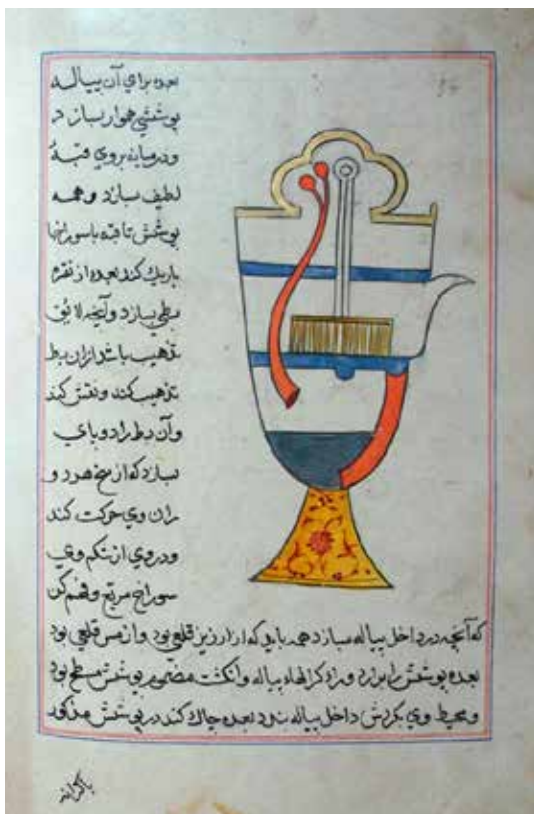 بعده برای آن پیاله
پوششی هموار بسازد
و در میانه بروی قبهٔ
لطیف سازد و همه
پوشش تا قبه با سوراخها
باریک کند بعده از نقره
بطی بسازد و آنچه لائق
تذهیب باشد ازان بط
تذهیب کند و نقش کند
وآن بط را دو پای
بسازد که از بیخ هر دو
ران وی حرکت کند
و در وی از شکم وی
سوراخ مربع و فهم کن
که آنچه در داخل پیاله سازد همه باید که از ارزیز قلعی بود و از مس قلعی بود
بعده پوشش را بر دارد و پیاله و انگشت مضموم پوشش مسطح بود
و محیط وی بگردش داخل پیاله بعده چاک کند در پوشش مذکور